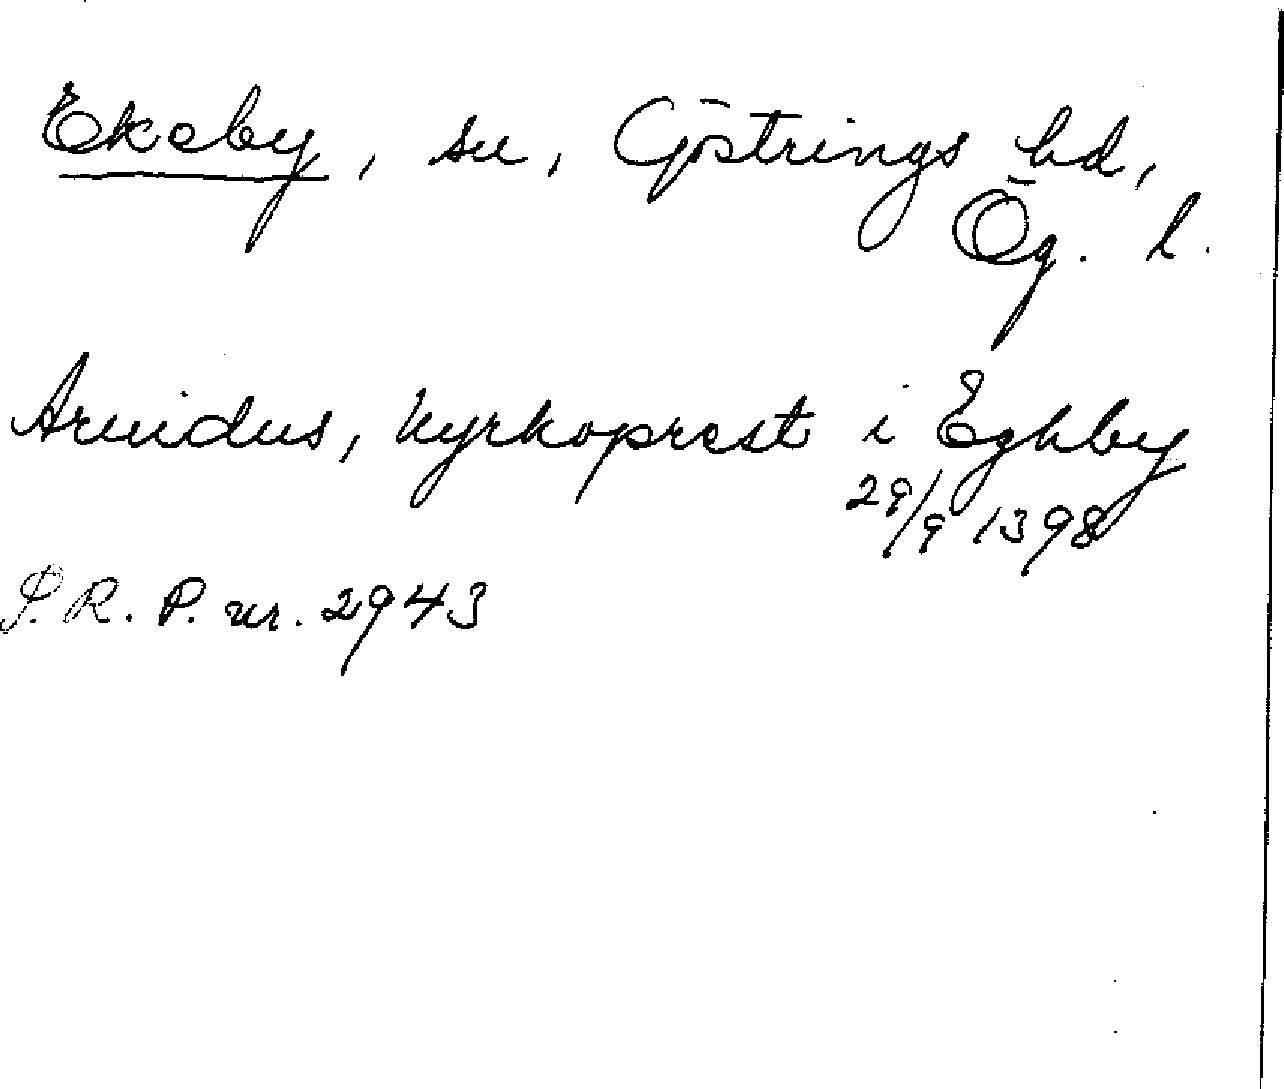 Ekeby, sn, Göstrings hd,
Ög. l.
Arvidus, kyrkoprest i Eghby
29/9 1398
S. R. P. nr. 2943